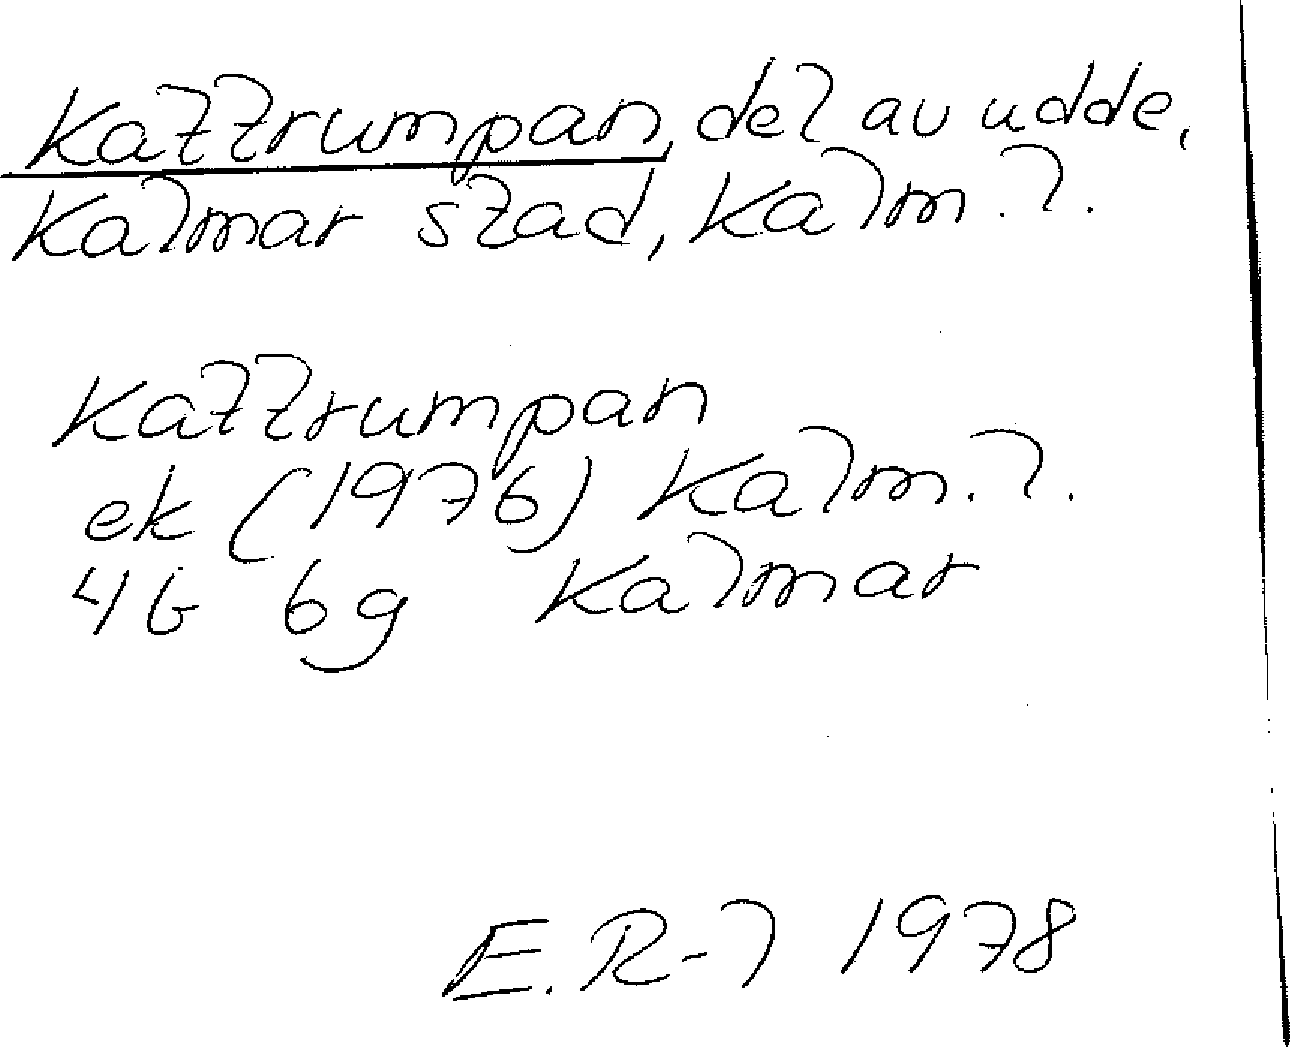 Kattrumpan, del av udde,
Kalmar stad, Kalm. l.
Kattrumpan
ek (1976) Kalm. l.
4G 6g Kalmar
E. R-l 1978